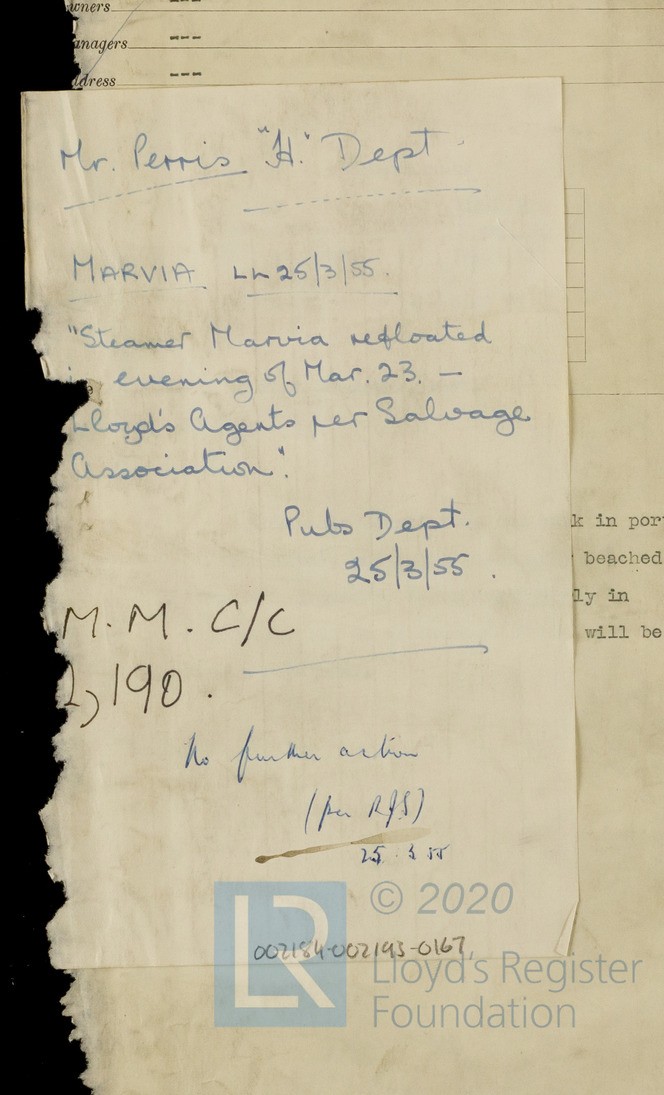 wners
anagers
ddress
Mr. Perris "H." Dept
MARVIA LL 25/3/55.
"Steamer Marvia refloated
evening of Mar. 23. —
Lloyd's Agents per Salvage
Association".
Pubs Dept.
25/3/55.
k in por
beached
ly in
will be
M.M. C/C
,190.
No further action
(per RJS)
25.3.55
002184-002193-0167
LR
© 2020
Lloyd's Register
Foundation